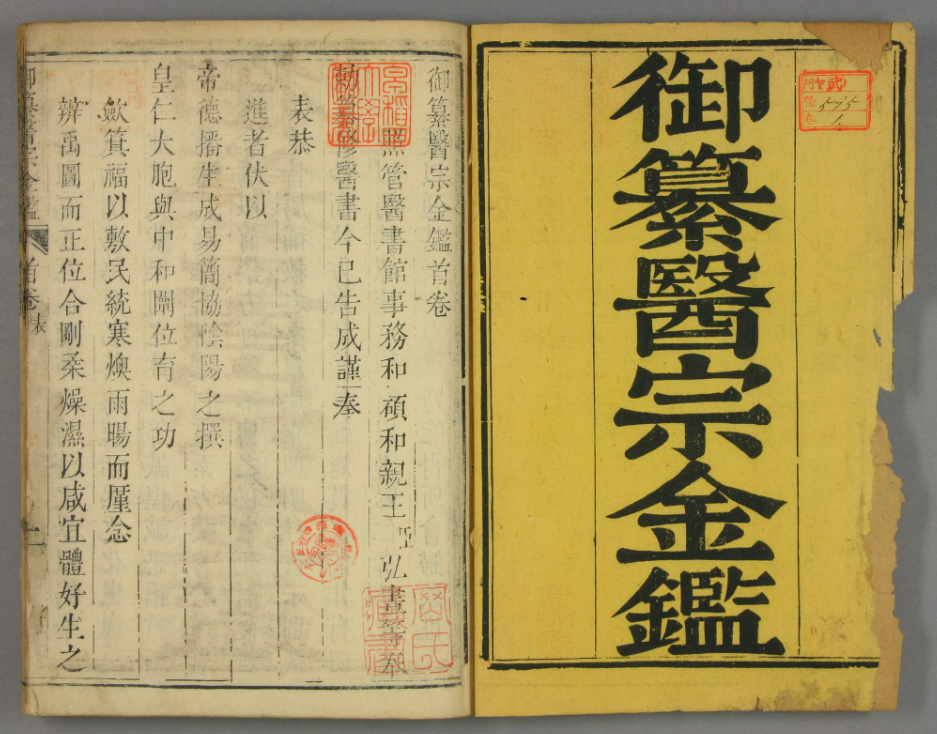 御纂醫宗金鑑
575
1
御纂醫宗金鑑首卷
照管醫書館事務和碩和親王臣弘晝等奉
勅纂修醫書今已告成謹奉
表恭
進者伏以
帝德播生成易簡協陰陽之撰
皇仁大胞與中和闡位育之功
歛箕福以敷民統寒燠雨暘而厪念
辨禹圖而正位合剛柔燥濕以咸宜體好生之
御纂醫宗金鑑 首卷 表 一